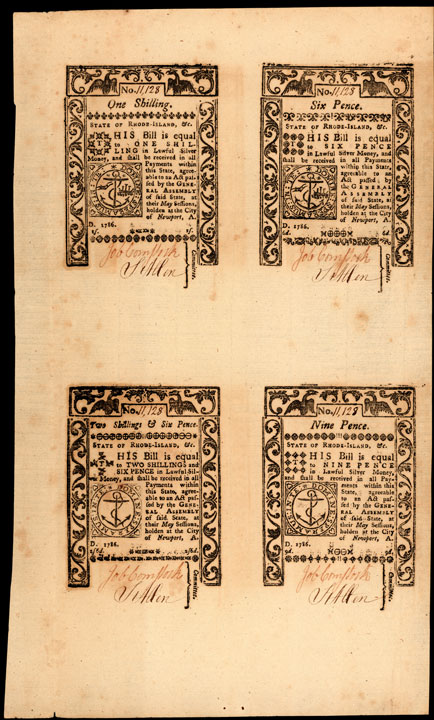 No. 11,128
One Shilling.
STATE OF RHODE-ISLAND, &c.
THIS Bill is equal
to ONE SHIL-
LING in Lawful Silver
Money, and shall be received in all
Payments within
this State, agree-
able to an Act pas-
sed by the GENE-
RAL ASSEMBLY
of said State, at
their May Sessions,
holden at the City
of Newport, A.
D. 1786.
1s. 1s.
Job Comstock
Committee.
No. 11,128
Six Pence.
STATE OF RHODE-ISLAND, &c.
THIS Bill is equal
to SIX PENCE
in Lawful Silver Money, and
shall be received in all Payments
within this State,
agreeable to an
Act passed by
the GENERAL
ASSEMBLY
of said State, at
their May Sessions,
holden at the City
of Newport, A.
D. 1786.
6d. 6d.
Job Comstock
Committee.
No. 11,128
Two Shillings & Six Pence.
STATE OF RHODE-ISLAND, &c.
THIS Bill is equal
to TWO SHILLINGS and
SIX PENCE in Lawful Sil-
ver Money, and shall be received in all
Payments within
this State, agree-
able to an Act pas-
sed by the GENE-
RAL ASSEMBLY
of said State, at
their May Sessions,
holden at the City
of Newport, A.
D. 1786.
2s6d. 2s6d.
Job Comstock
Committee.
No. 11,128
Nine Pence.
STATE OF RHODE-ISLAND, &c.
THIS Bill is equal
to NINE PENCE
in Lawful Silver Money,
and shall be received in all Pay-
ments within this
State, agreeable
to an Act passed
by the GENERAL
ASSEMBLY
of said State, at
their May Sessions,
holden at the City
of Newport, A.
D. 1786.
9d. 9d.
Job Comstock
Committee.